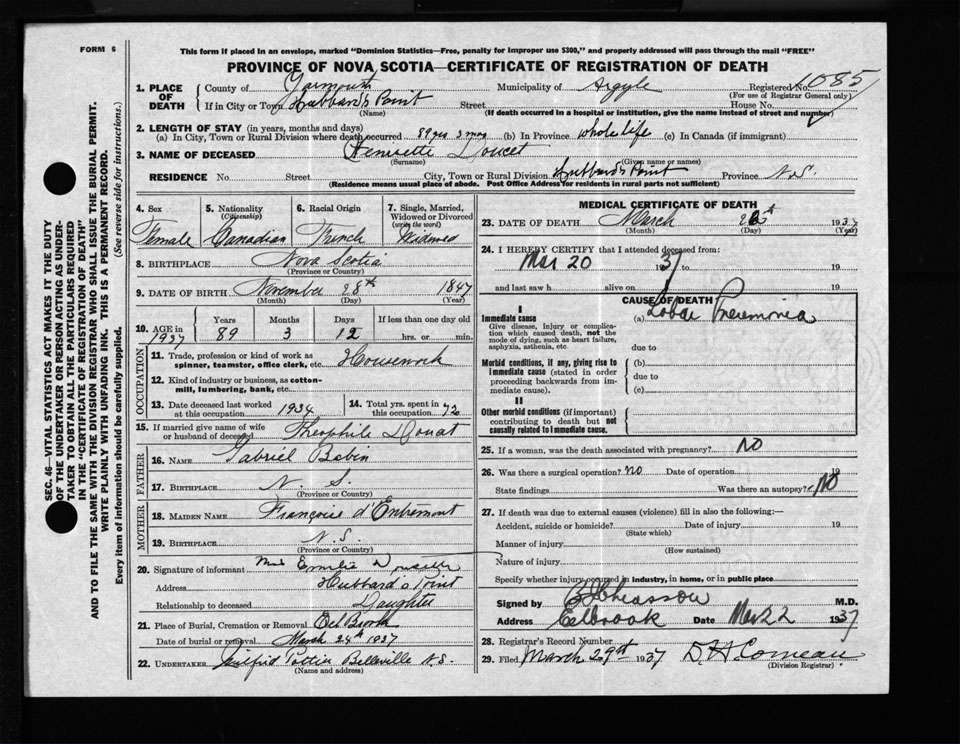 FORM 6
This form if placed in an envelope, marked "Dominion Statistics—Free, penalty for improper use $300," and properly addressed will pass through the mail "FREE"
PROVINCE OF NOVA SCOTIA—CERTIFICATE OF REGISTRATION OF DEATH
1. PLACE OF DEATH County of Yarmouth Municipality of Argyle Registered No. 1085
(For use of Registrar General only)
If in City or Town Hubbard's Point Street House No.
(Name) (If death occurred in a hospital or institution, give the name instead of street and number)
2. LENGTH OF STAY (in years, months and days)
(a) In City, Town or Rural Division where death occurred 89 yrs 3 mos (b) In Province whole life (c) In Canada (if immigrant)
3. NAME OF DECEASED Henriette Doucet
(Surname) (Given name or names)
RESIDENCE No. Street City, Town or Rural Division Hubbard's Point Province N.S.
(Residence means usual place of abode. Post Office Address for residents in rural parts not sufficient)
SEC. 46—VITAL STATISTICS ACT MAKES IT THE DUTY
OF THE UNDERTAKER OR PERSON ACTING AS UNDER-
TAKER TO OBTAIN ALL THE PARTICULARS REQUIRED
IN THE "CERTIFICATE OF REGISTRATION OF DEATH"
AND TO FILE THE SAME WITH THE DIVISION REGISTRAR WHO SHALL ISSUE THE BURIAL PERMIT.
WRITE PLAINLY WITH UNFADING INK. THIS IS A PERMANENT RECORD.
Every item of information should be carefully supplied. (See reverse side for instructions.)
4. Sex 5. Nationality (Citizenship) 6. Racial Origin 7. Single, Married, Widowed or Divorced (write the word)
Female Canadian French Widowed
8. BIRTHPLACE Nova Scotia
(Province or Country)
9. DATE OF BIRTH November 28th 1847
(Month) (Day) (Year)
10. AGE in 1937 Years Months Days If less than one day old
89 3 12 hrs. or min.
OCCUPATION
11. Trade, profession or kind of work as spinner, teamster, office clerk, etc. Housework
12. Kind of industry or business, as cotton-mill, lumbering, bank, etc.
13. Date deceased last worked at this occupation 1934 14. Total yrs. spent in this occupation 72
15. If married give name of wife or husband of deceased Theophile Doucet
FATHER
16. NAME Gabriel Babin
17. BIRTHPLACE N. S.
(Province or Country)
MOTHER
18. MAIDEN NAME Françoise d'Entremont
19. BIRTHPLACE N.S.
(Province or Country)
20. Signature of informant Mrs Emilie
Address Hubbard's Point
Relationship to deceased Daughter
21. Place of Burial, Cremation or Removal Eel Brook
Date of burial or removal March 24th 1937
22. UNDERTAKER Wilfrid Pottier Belleville N.S.
(Name and address)
MEDICAL CERTIFICATE OF DEATH
23. DATE OF DEATH March 193
(Month) (Day) (Year)
24. I HEREBY CERTIFY that I attended deceased from:
Mar 20 1937 to 19
and last saw h alive on 19
CAUSE OF DEATH
I
Immediate cause (a) Lobar Pneumonia
Give disease, injury or complica-
tion which caused death, not the
mode of dying, such as heart failure,
asphyxia, asthenia, etc. due to
Morbid conditions, if any, giving rise to (b)
immediate cause (stated in order due to
proceeding backwards from im-
mediate cause). (c)
II
Other morbid conditions (if important)
contributing to death but not
causally related to immediate cause.
25. If a woman, was the death associated with pregnancy? NO
26. Was there a surgical operation? NO Date of operation 19
State findings Was there an autopsy? NO
27. If death was due to external causes (violence) fill in also the following:—
Accident, suicide or homicide? Date of injury 19
(State which)
Manner of injury
(How sustained)
Nature of injury
Specify whether injury occurred in industry, in home, or in public place
Signed by Chiasson M.D.
Address Eelbrook Date Mar 22 1937
28. Registrar's Record Number
29. Filed March 29th 1937 D H Comeau
(Division Registrar)